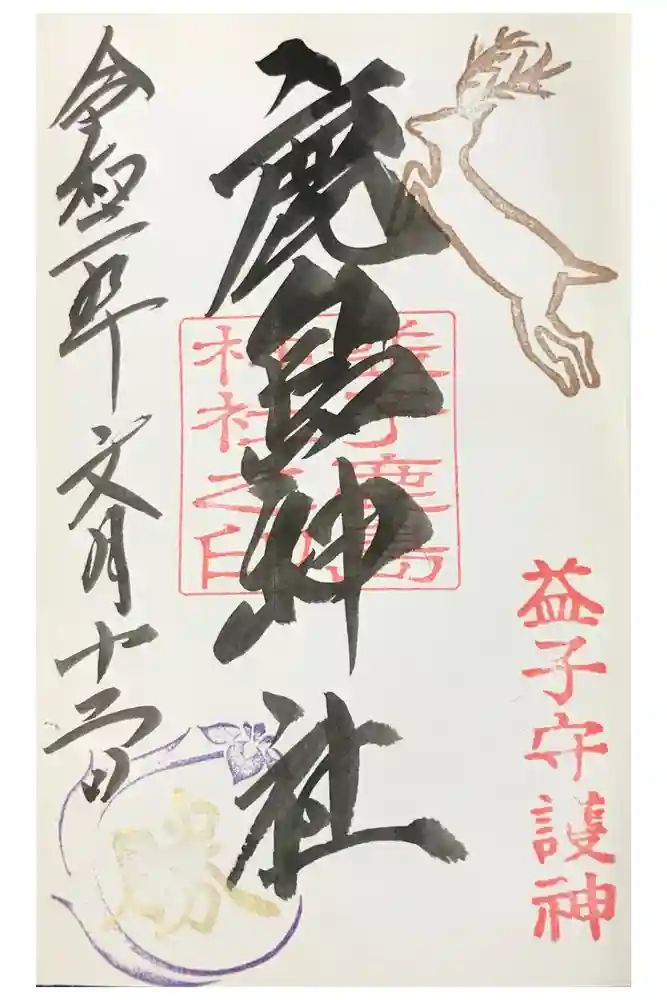 益子守護神
鹿島神社
益子鹿島
神社之印
令和五年文月十
勝